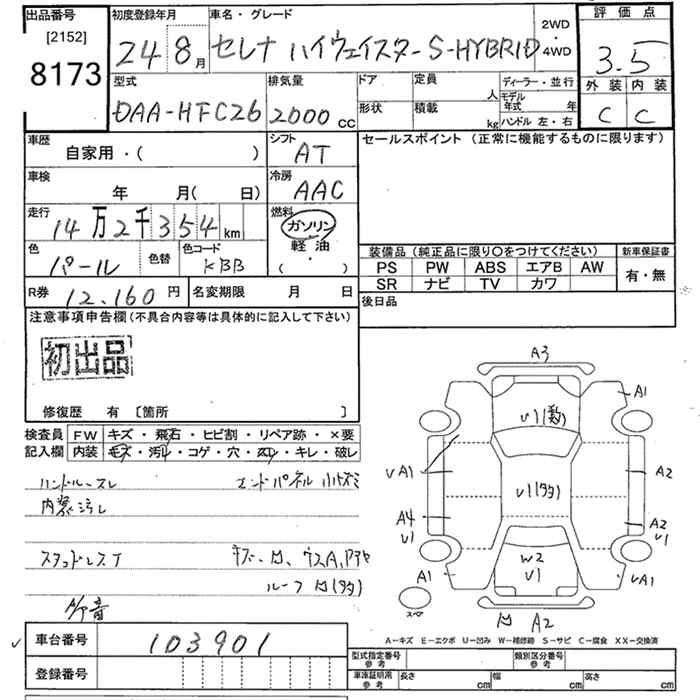 出品番号 [2152] 8173
初度登録年月 24 8月
車名・グレード セレナ ハイウェイスター S-HYBRID
2WD ・ 4WD
評価点 3.5
外装 内装
C C
型式 DAA-HFC26
排気量 2000 cc
ドア
形状
定員 人
積載 kg
ディーラー・並行
モデル年式 年
ハンドル 左・右
車歴 自家用・( )
シフト AT
セールスポイント (正常に機能するものに限ります)
車検 年 月( 日)
冷房 AAC
走行 14万2千354km
燃料 ガソリン
軽油・( )
色 パール
色替
色コード KBB
装備品 (純正品に限り〇をつけてください)
新車保証書
PS PW ABS エアB AW
有・無
SR ナビ TV カワ
R券 12,160円
名変期限 月 日
後日品
注意事項申告欄(不具合内容等は具体的に記入して下さい)
初出品
修復歴 有 [箇所 ]
検査員記入欄
FW キズ・飛石・ヒビ割・リペア跡・×要
内装 キズ・汚れ・コゲ・穴・スレ・キレ・破レ
ハンドルースレ エンドパネル
内装汚し
スタッドレスT
A3
A1
U1
A1
A2
A4
U1
A2
U1
W2
U1
A1
A1
A2
車台番号 103901
登録番号
A-キズ E-エクボ U-凹み W-補修跡 S-サビ C-腐食 XX-交換済
型式指定番号 参考
類別区分番号 参考
車庫証明用 参考 長さ cm 幅 cm 高さ cm